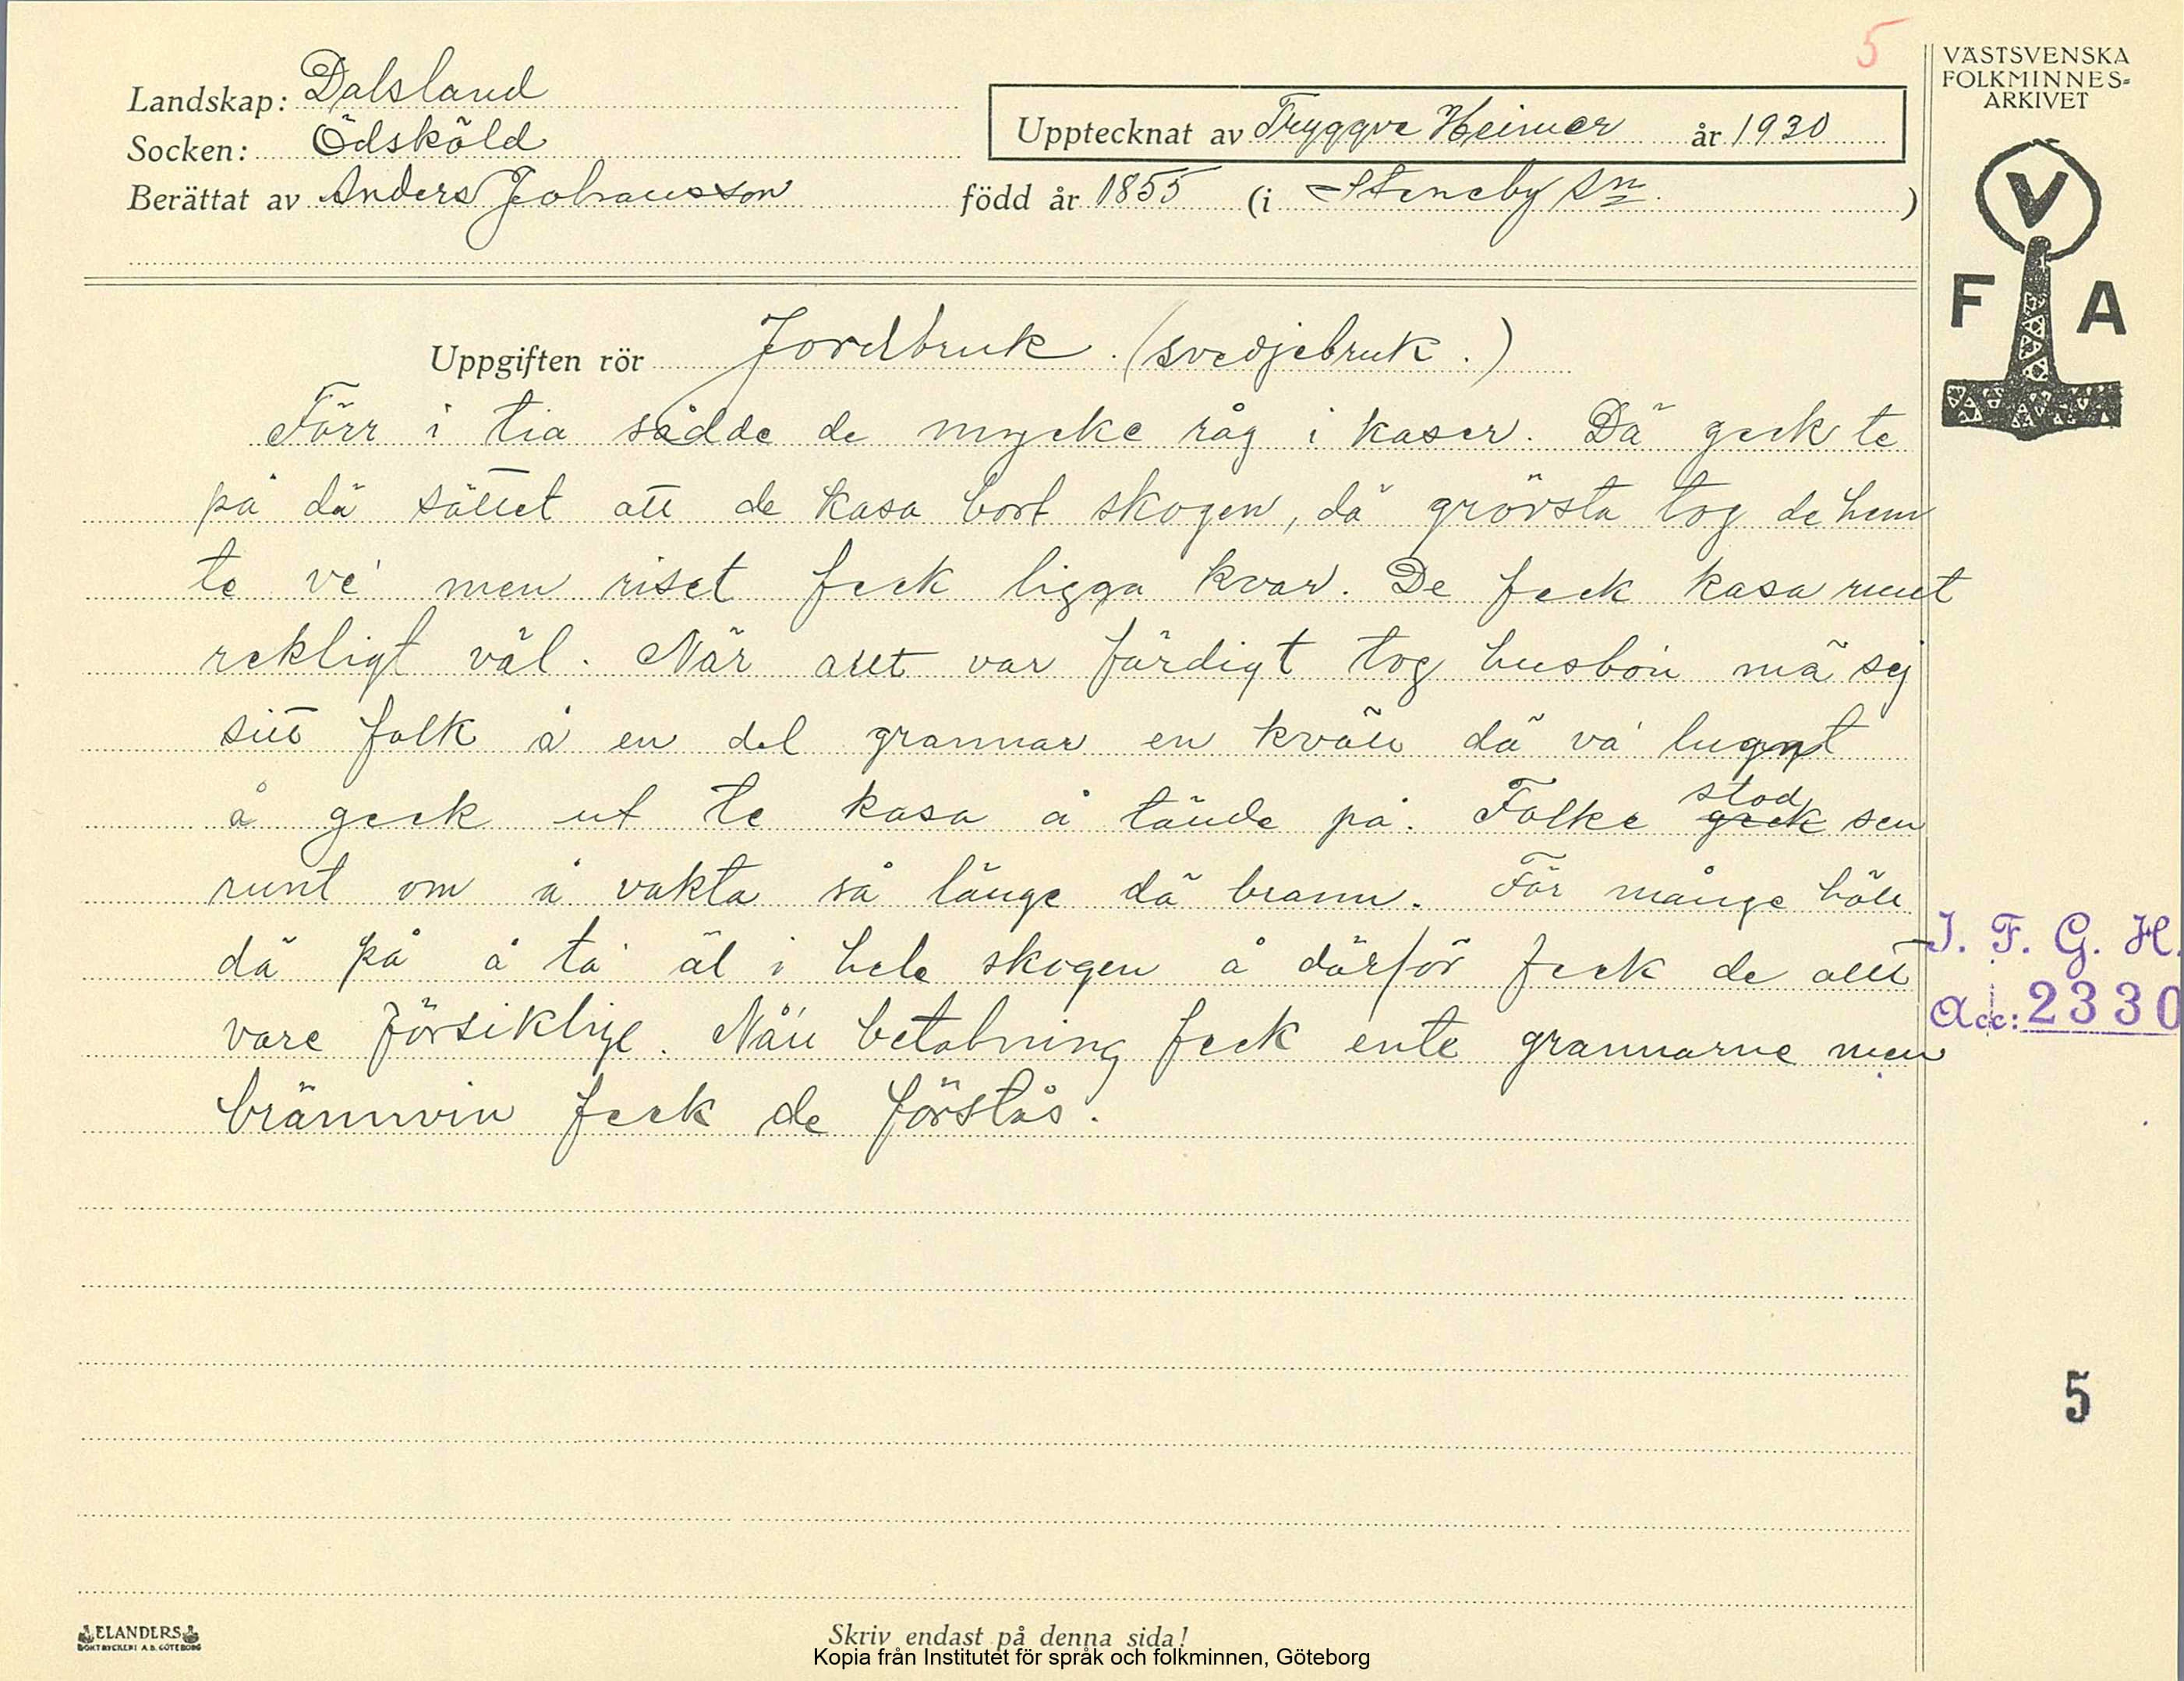 5
VÄSTSVENSKA
FOLKMINNES=
ARKIVET
Landskap: Dalsland
Upptecknat av Tryggve Heimer år 1930
Socken: Ödsköld
Berättat av Anders Johansson född år 1855 (i Steneby sn.)
V
F A
Uppgiften rör Jordbruk. (svedjebruk.)
Förr i tia sådde de mycke råg i kaser. Dä geck te
på dä sättet att de kasa bort skogen, dä grövsta tog de hem
te ve' men riset feck ligga kvar. De feck kasa runt
rekligt väl. När allt var färdigt tog husbon mä sej
sitt folk å en del grannar en kväll dä va' lugnt
å geck ut te kasa å tände på. Folke stod geck sen
runt om å vakta så länge dä brann. För månge höll
dä på å ta' äl i hele skogen å därför feck de allt
I. F. G. H.
vare försiktige. Nån betalning feck ente grannarne men
Acc: 2330
brännvin feck de förstås.
5
ELANDERS
BOKTRYCKERI A.B. GÖTEBORG
Skriv endast på denna sida!
Kopia från Institutet för språk och folkminnen, Göteborg